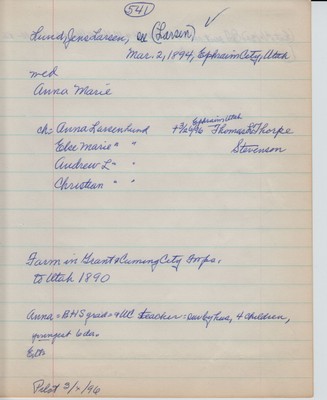 541
Lund, Jens Larsen, (Larsen) ✓
Mar. 2, 1894, Ephraim City, Utah
wed
Anna Marie
Ephraim Utah
ch = Anna Larsen Lund Thomas Thorpe
Else Marie " " Stevenson
Andrew L " "
Christian " "
Farm in Grant & Cuming City Twps.
to Utah 1890
Anna = BHS grad + UC teacher = 4 children,
youngest 6 da.
Pilot 3/ /96